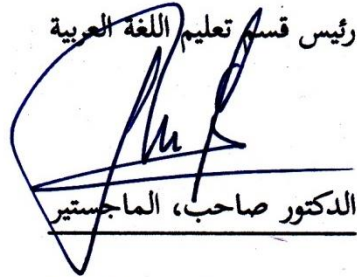 رئيس قسم تعليم اللغة العربية
الدكتور صاحب، الماجستير